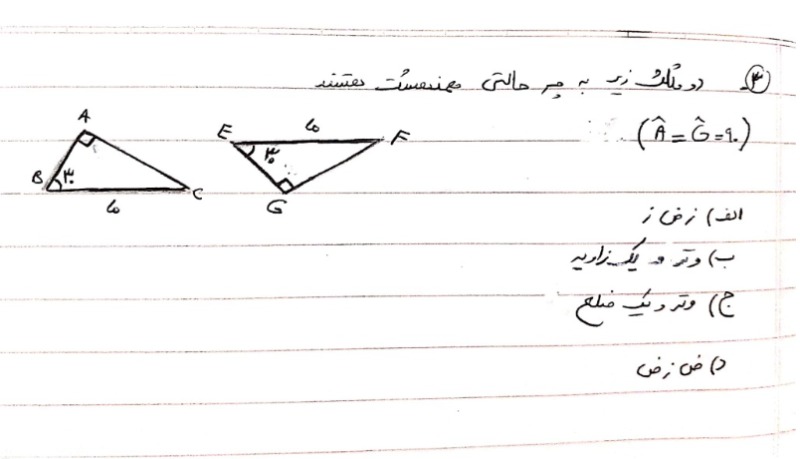 ۳) دو مثلث زیر به چه حالتی همنهشت هستند
(Â = Ĝ = ۹۰)
A
B ۳۰ C
۵
E ۵ F
۳۰
G
الف) ز ض ز
ب) وتر و یک زاویه
ج) وتر و یک ضلع
د) ض ز ض